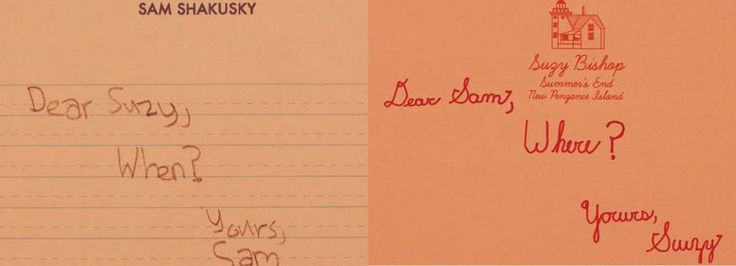 SAM SHAKUSKY
Dear Suzy,
When?
Yours,
Sam
Suzy Bishop
Summer's End
New Pengance Island
Dear Sam,
Where?
Yours,
Suzy